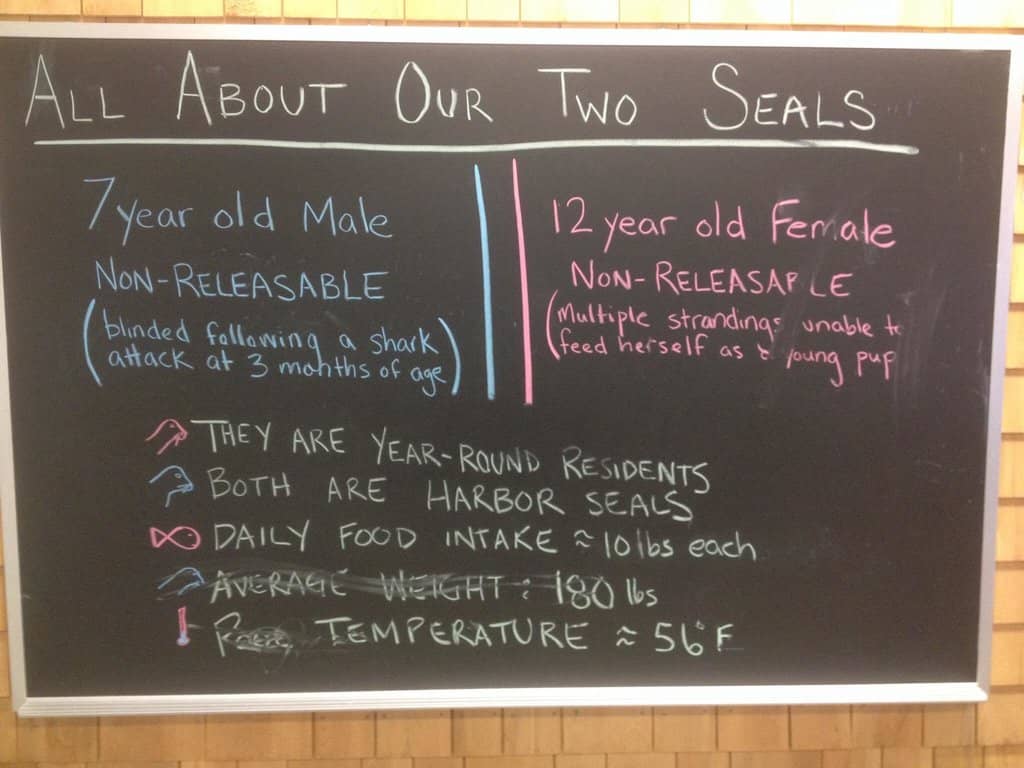 ALL ABOUT OUR TWO SEALS
7 year old Male
NON-RELEASABLE
(blinded following a shark
attack at 3 months of age)
12 year old Female
NON-RELEASABLE
(Multiple strandings unable to
feed herself as a young pup
THEY ARE YEAR-ROUND RESIDENTS
BOTH ARE HARBOR SEALS
DAILY FOOD INTAKE ≈ 10 lbs each
AVERAGE WEIGHT: 180 lbs
TEMPERATURE ≈ 56°F